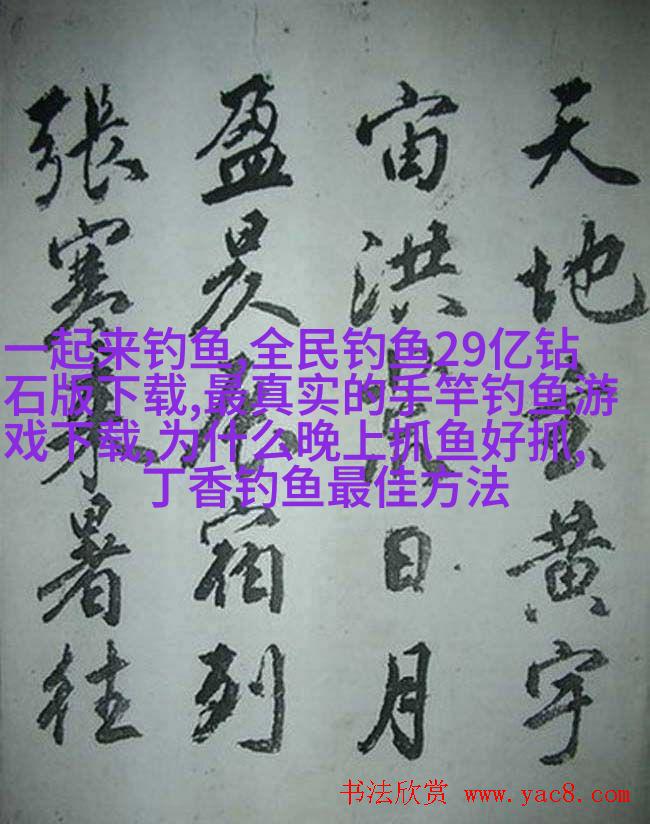 天地玄黄宇
宙洪荒日月
盈昃辰宿列
張寒来暑往
一起来钓鱼,全民钓鱼29亿钻
石版下载,最真实的手竿钓鱼游
戏下载,为什么晚上抓鱼好抓,
丁香钓鱼最佳方法
书法欣赏 www.yac8.com